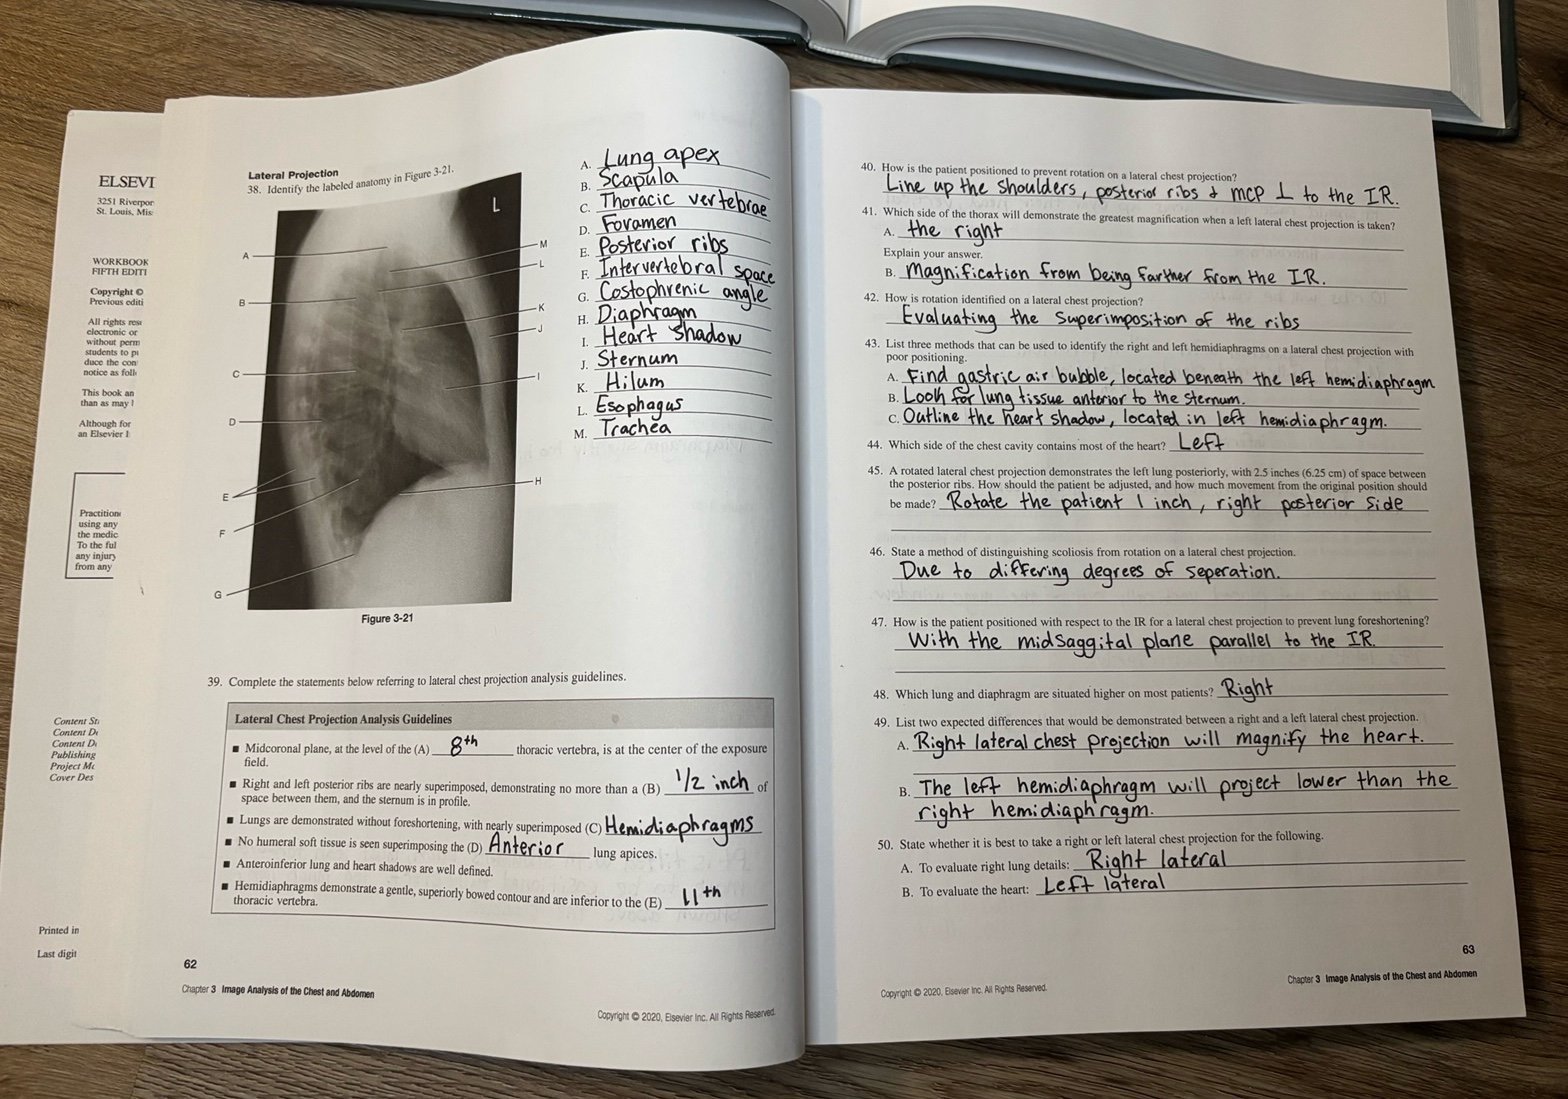 ELSEVI
3251 Riverpor
St. Louis, Mis
WORKBOOK
FIFTH EDITI
Copyright ©
Previous editi
All rights res
electronic or
without perm
students to p
duce the con
notice as foll
This book an
than as may
Although for
an Elsevier
Practition
using any
the medic
To the ful
any injury
from any
Content St
Content D
Content D
Publishing
Project M
Cover Des
Printed in
Last digit
Lateral Projection
38. Identify the labeled anatomy in Figure 3-21.
L
A
B
C
D
E
F
G
M
L
K
J
I
H
Figure 3-21
A. Lung apex
B. Scapula
C. Thoracic vertebrae
D. Foramen
E. Posterior ribs
F. Intervertebral space
G. Costophrenic angle
H. Diaphragm
I. Heart shadow
J. Sternum
K. Hilum
L. Esophagus
M. Trachea
39. Complete the statements below referring to lateral chest projection analysis guidelines.
Lateral Chest Projection Analysis Guidelines
■ Midcoronal plane, at the level of the (A) 8th thoracic vertebra, is at the center of the exposure
field.
■ Right and left posterior ribs are nearly superimposed, demonstrating no more than a (B) 1/2 inch of
space between them, and the sternum is in profile.
■ Lungs are demonstrated without foreshortening, with nearly superimposed (C) Hemidiaphragms
■ No humeral soft tissue is seen superimposing the (D) Anterior lung apices.
■ Anteroinferior lung and heart shadows are well defined.
■ Hemidiaphragms demonstrate a gentle, superiorly bowed contour and are inferior to the (E) 11th
thoracic vertebra.
62
Chapter 3 Image Analysis of the Chest and Abdomen
Copyright © 2020, Elsevier Inc. All Rights Reserved.
40. How is the patient positioned to prevent rotation on a lateral chest projection?
Line up the shoulders, posterior ribs & MCP ⊥ to the IR.
41. Which side of the thorax will demonstrate the greatest magnification when a left lateral chest projection is taken?
A. the right
Explain your answer.
B. Magnification from being farther from the IR.
42. How is rotation identified on a lateral chest projection?
Evaluating the superimposition of the ribs
43. List three methods that can be used to identify the right and left hemidiaphragms on a lateral chest projection with
poor positioning.
A. Find gastric air bubble, located beneath the left hemidiaphragm
B. Look for lung tissue anterior to the sternum.
C. Outline the heart shadow, located in left hemidiaphragm.
44. Which side of the chest cavity contains most of the heart? Left
45. A rotated lateral chest projection demonstrates the left lung posteriorly, with 2.5 inches (6.25 cm) of space between
the posterior ribs. How should the patient be adjusted, and how much movement from the original position should
be made? Rotate the patient 1 inch, right posterior side
46. State a method of distinguishing scoliosis from rotation on a lateral chest projection.
Due to differing degrees of seperation.
47. How is the patient positioned with respect to the IR for a lateral chest projection to prevent lung foreshortening?
With the midsaggital plane parallel to the IR.
48. Which lung and diaphragm are situated higher on most patients? Right
49. List two expected differences that would be demonstrated between a right and a left lateral chest projection.
A. Right lateral chest projection will magnify the heart.
B. The left hemidiaphragm will project lower than the
right hemidiaphragm.
50. State whether it is best to take a right or left lateral chest projection for the following.
A. To evaluate right lung details: Right lateral
B. To evaluate the heart: Left lateral
63
Chapter 3 Image Analysis of the Chest and Abdomen
Copyright © 2020, Elsevier Inc. All Rights Reserved.